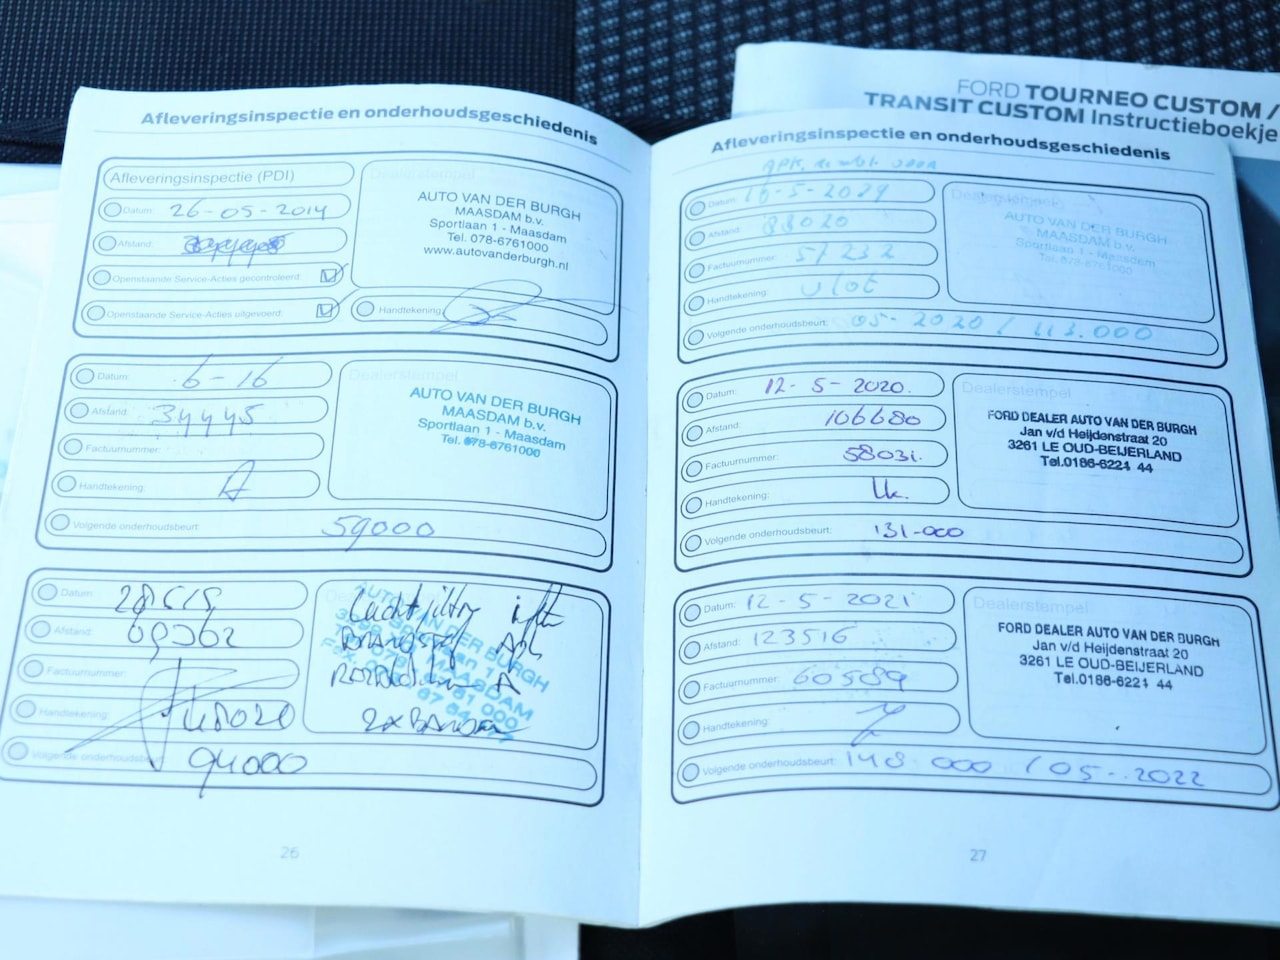 FORD TOURNEO CUSTOM /
TRANSIT CUSTOM Instructieboekje
Afleveringsinspectie en onderhoudsgeschiedenis
Afleveringsinspectie (PDI)
Datum: 26-05-2014
Afstand:
Openstaande Service-Acties gecontroleerd:
Openstaande Service-Acties uitgevoerd:
Dealerstempel
AUTO VAN DER BURGH
MAASDAM b.v.
Sportlaan 1 - Maasdam
Tel. 078-6761000
www.autovanderburgh.nl
Handtekening:
Datum: 6-16
Afstand: 34445
Factuurnummer:
Handtekening:
Volgende onderhoudsbeurt: 59000
Dealerstempel
AUTO VAN DER BURGH
MAASDAM b.v.
Sportlaan 1 - Maasdam
Tel. 078-6761000
Datum:
Afstand:
Factuurnummer:
Handtekening:
Volgende onderhoudsbeurt: 94000
AUTO VAN DER BURGH
MAASDAM
26
Afleveringsinspectie en onderhoudsgeschiedenis
Datum:
Afstand: 88020
Factuurnummer: 57232
Handtekening:
Volgende onderhoudsbeurt: 05-2020 / 113.000
Dealerstempel
AUTO VAN DER BURGH
MAASDAM b.v.
Sportlaan 1 - Maasdam
Tel. 078-6761000
Datum: 12-5-2020.
Afstand: 106680
Factuurnummer: 58031.
Handtekening:
Volgende onderhoudsbeurt: 131-000
Dealerstempel
FORD DEALER AUTO VAN DER BURGH
Jan v/d Heijdenstraat 20
3261 LE OUD-BEIJERLAND
Tel.0186-6221 44
Datum: 12-5-2021
Afstand: 123516
Factuurnummer: 60589
Handtekening:
Volgende onderhoudsbeurt: 148.000 / 05-2022
Dealerstempel
FORD DEALER AUTO VAN DER BURGH
Jan v/d Heijdenstraat 20
3261 LE OUD-BEIJERLAND
Tel.0186-6221 44
27